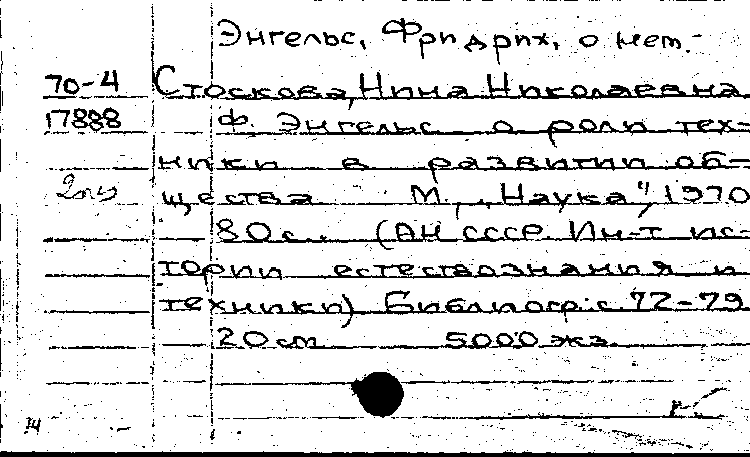 Энгельс, Фридрих, о нем.
70-4 Стоскова, Нина Николаевна
17888 Ф. Энгельс о роли тех-
ники в развитии об-
щества М., „Наука", 1970
80 с. (АН СССР. Ин-т ис-
тории естествознания и
техники) Библиогр: с. 72-79
20 см 5000 экз.
14